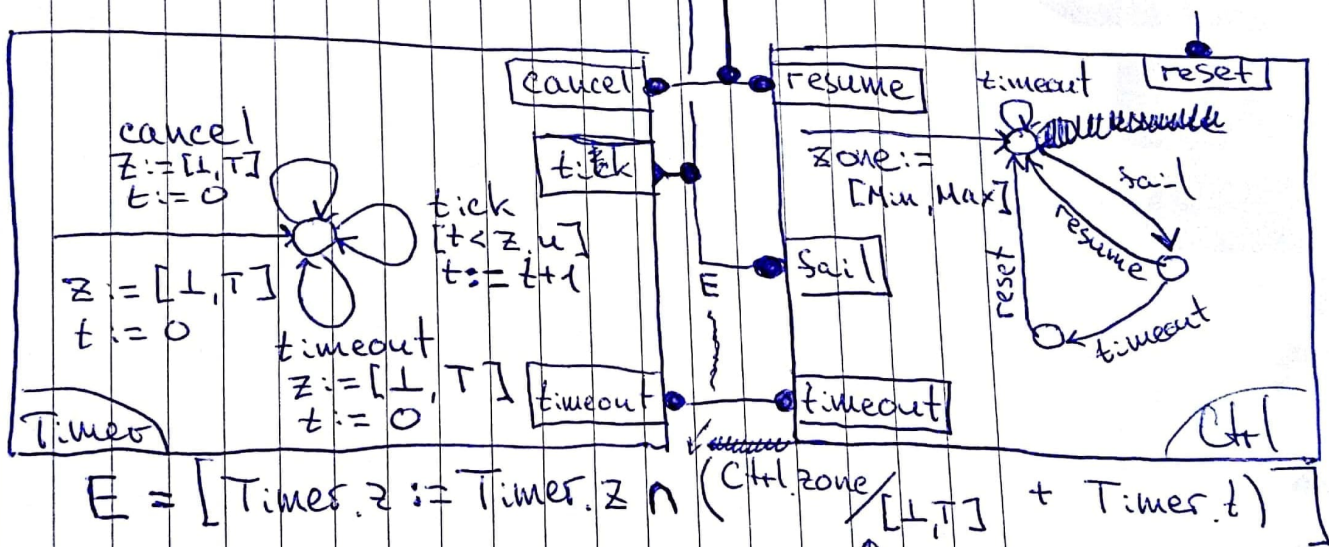 cancel
z := [⊥,T]
t := 0
z := [⊥,T]
t := 0
tick
[t < z.u]
t := t+1
timeout
z := [⊥,T]
t := 0
Timer
cancel
tick
timeout
resume
fail
timeout
E
reset
timeout
zone :=
[Min, Max]
fail
resume
reset
timeout
Ctrl
E = [Timer.z := Timer.z ∩ (Ctrl.zone/[⊥,T] + Timer.t)]